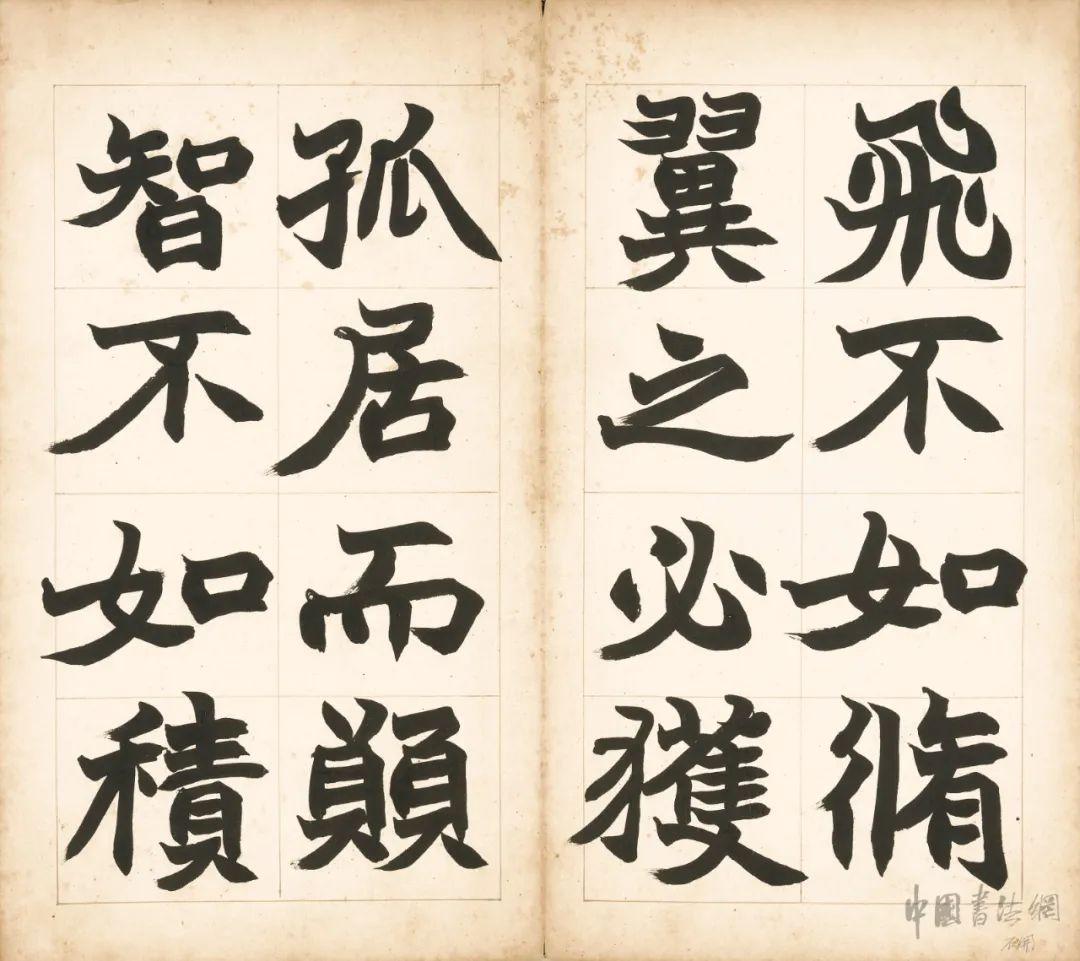 飛不如脩
翼之必獲
孤居而願
智不如積
中國書法網